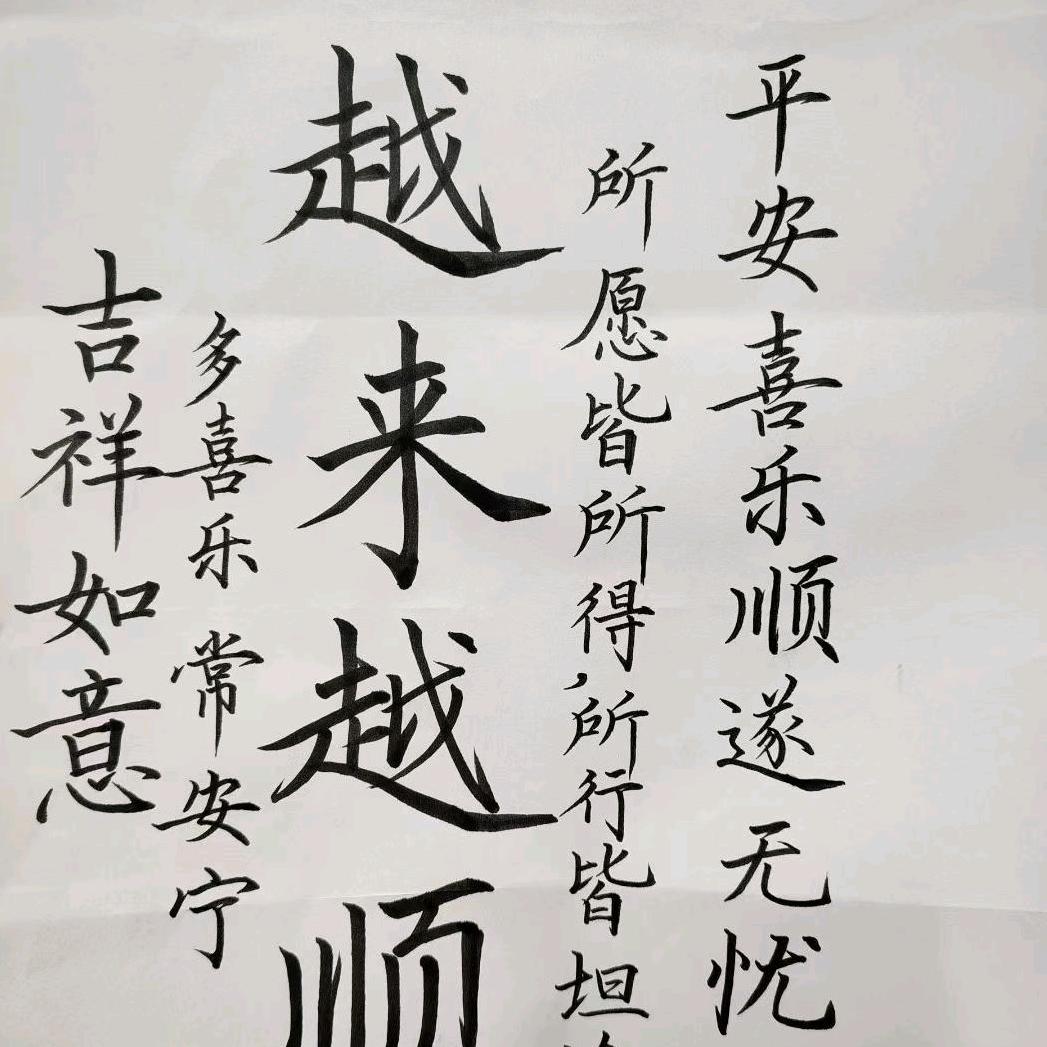 平安喜乐顺遂无忧
所愿皆所得,所行皆坦
越来越顺
多喜乐 常安宁
吉祥如意